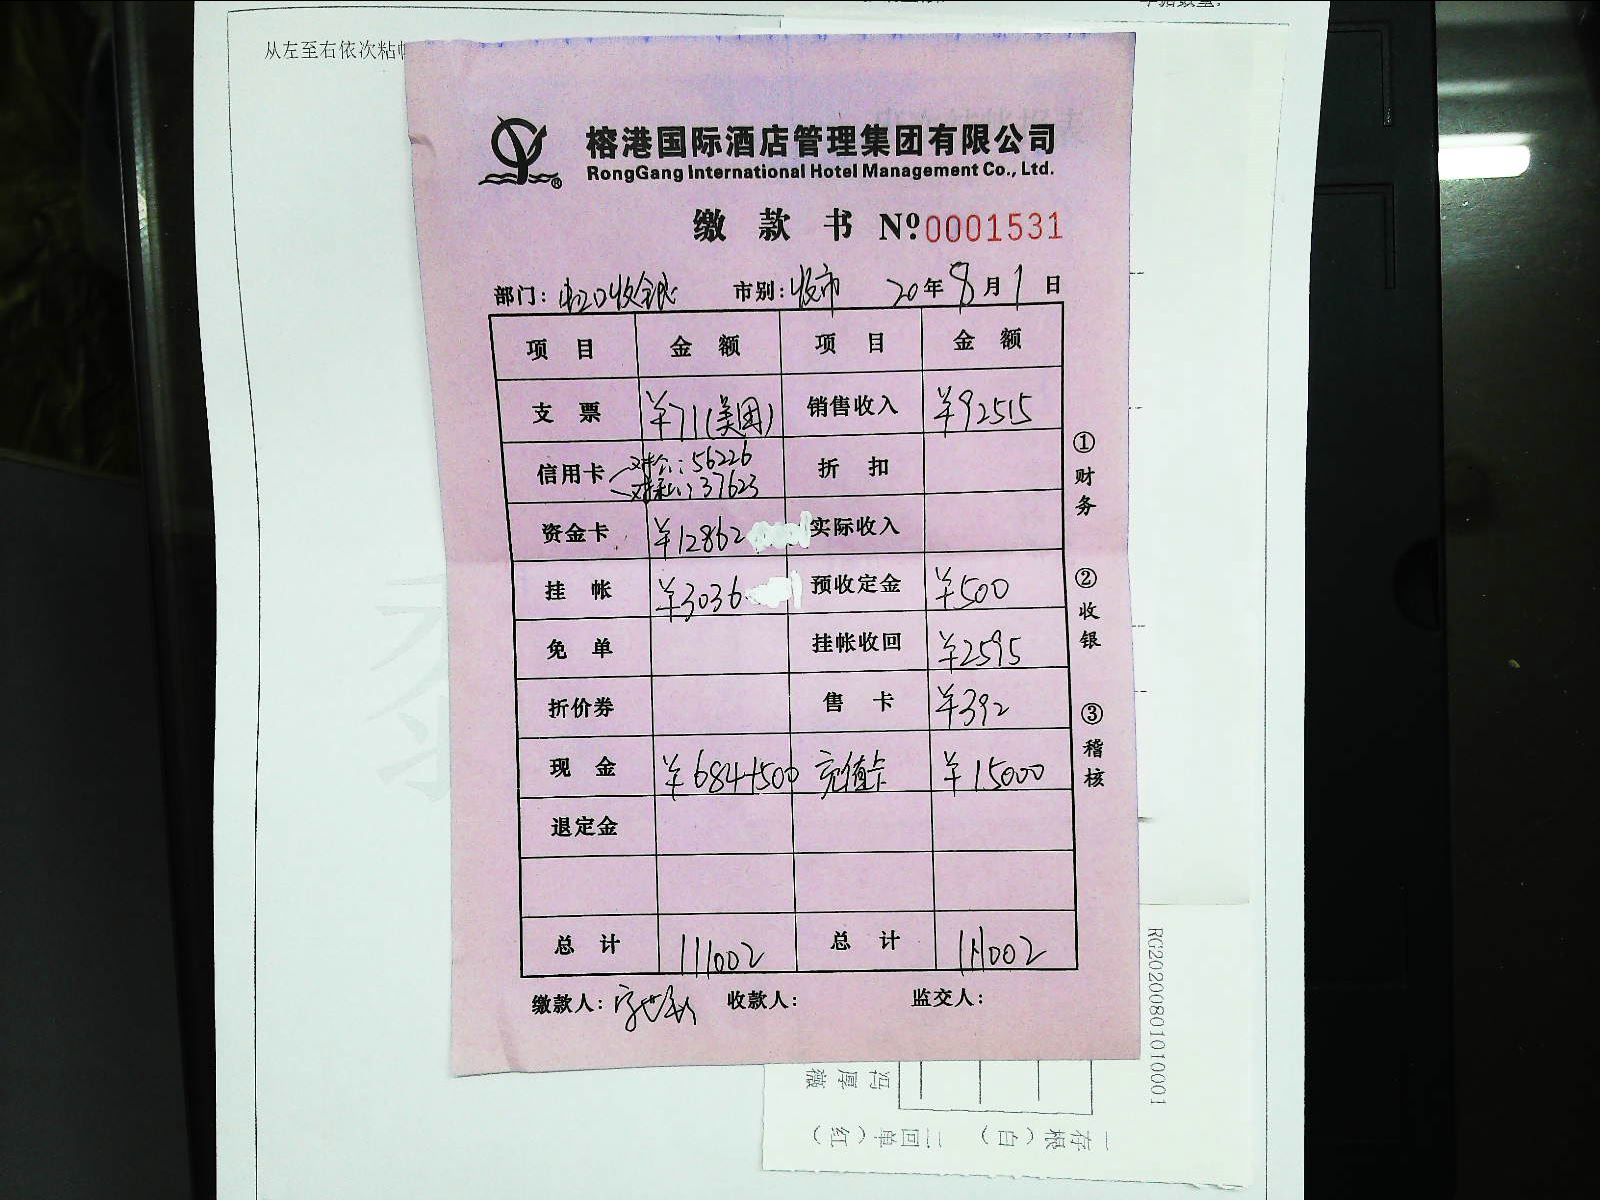 从左至右依次粘
榕港国际酒店管理集团有限公司
RongGang International Hotel Management Co., Ltd.
缴款书 Nº 0001531
部门: 虹口收银 市别: 收市 20年8月1日
项目 金额 项目 金额
支票 ¥71(美团) 销售收入 ¥92515
信用卡 对公: 56226 折扣
对私: 37623
资金卡 ¥12862 实际收入
挂帐 ¥3036 预收定金 ¥500
免单 挂帐收回 ¥2595
折价券 售卡 ¥392
现金 ¥684+500 充值卡 ¥15000
退定金
总计 111002 总计 111002
缴款人: 收款人: 监交人:
①财务
②收银
③稽核
RG20200801010001
冯厚薇
一存根(白) 二回单(红)